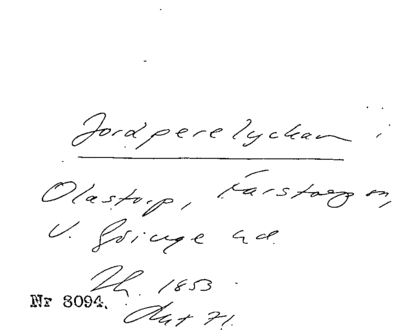 Jordpærelyckan i
Olastorp, Farstorps sn,
V. Göinge hd.
Th. 1853
Nr 8094. Akt 71.